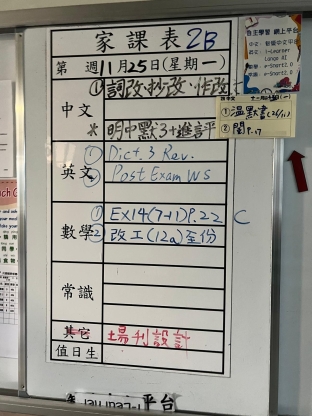 家課表 2B
第 週 11月25日(星期一)
中文
①詞改、抄改、作改
*明中默3+進評
英文
① Dict. 3 Rev.
② Post Exam WS
數學
① EX14(7-11)P.22 C
② 改工(12a)全份
常識
其它
場刊設計
值日生
自主學習 網上平台
① 溫默書(26/11)
② 閱P.17
平台